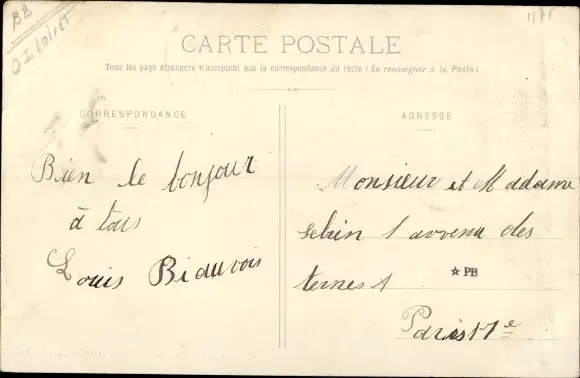 BB
OI Loiret
CARTE POSTALE
Tous les pays étrangers n'acceptent pas la correspondance au recto (Se renseigner à la Poste)
CORRESPONDANCE
Bien le bonjour
à tous
Louis Biauvois
ADRESSE
Monsieur et Madame
1 avvenu des
ternes 1
★ PB
Paris 17e